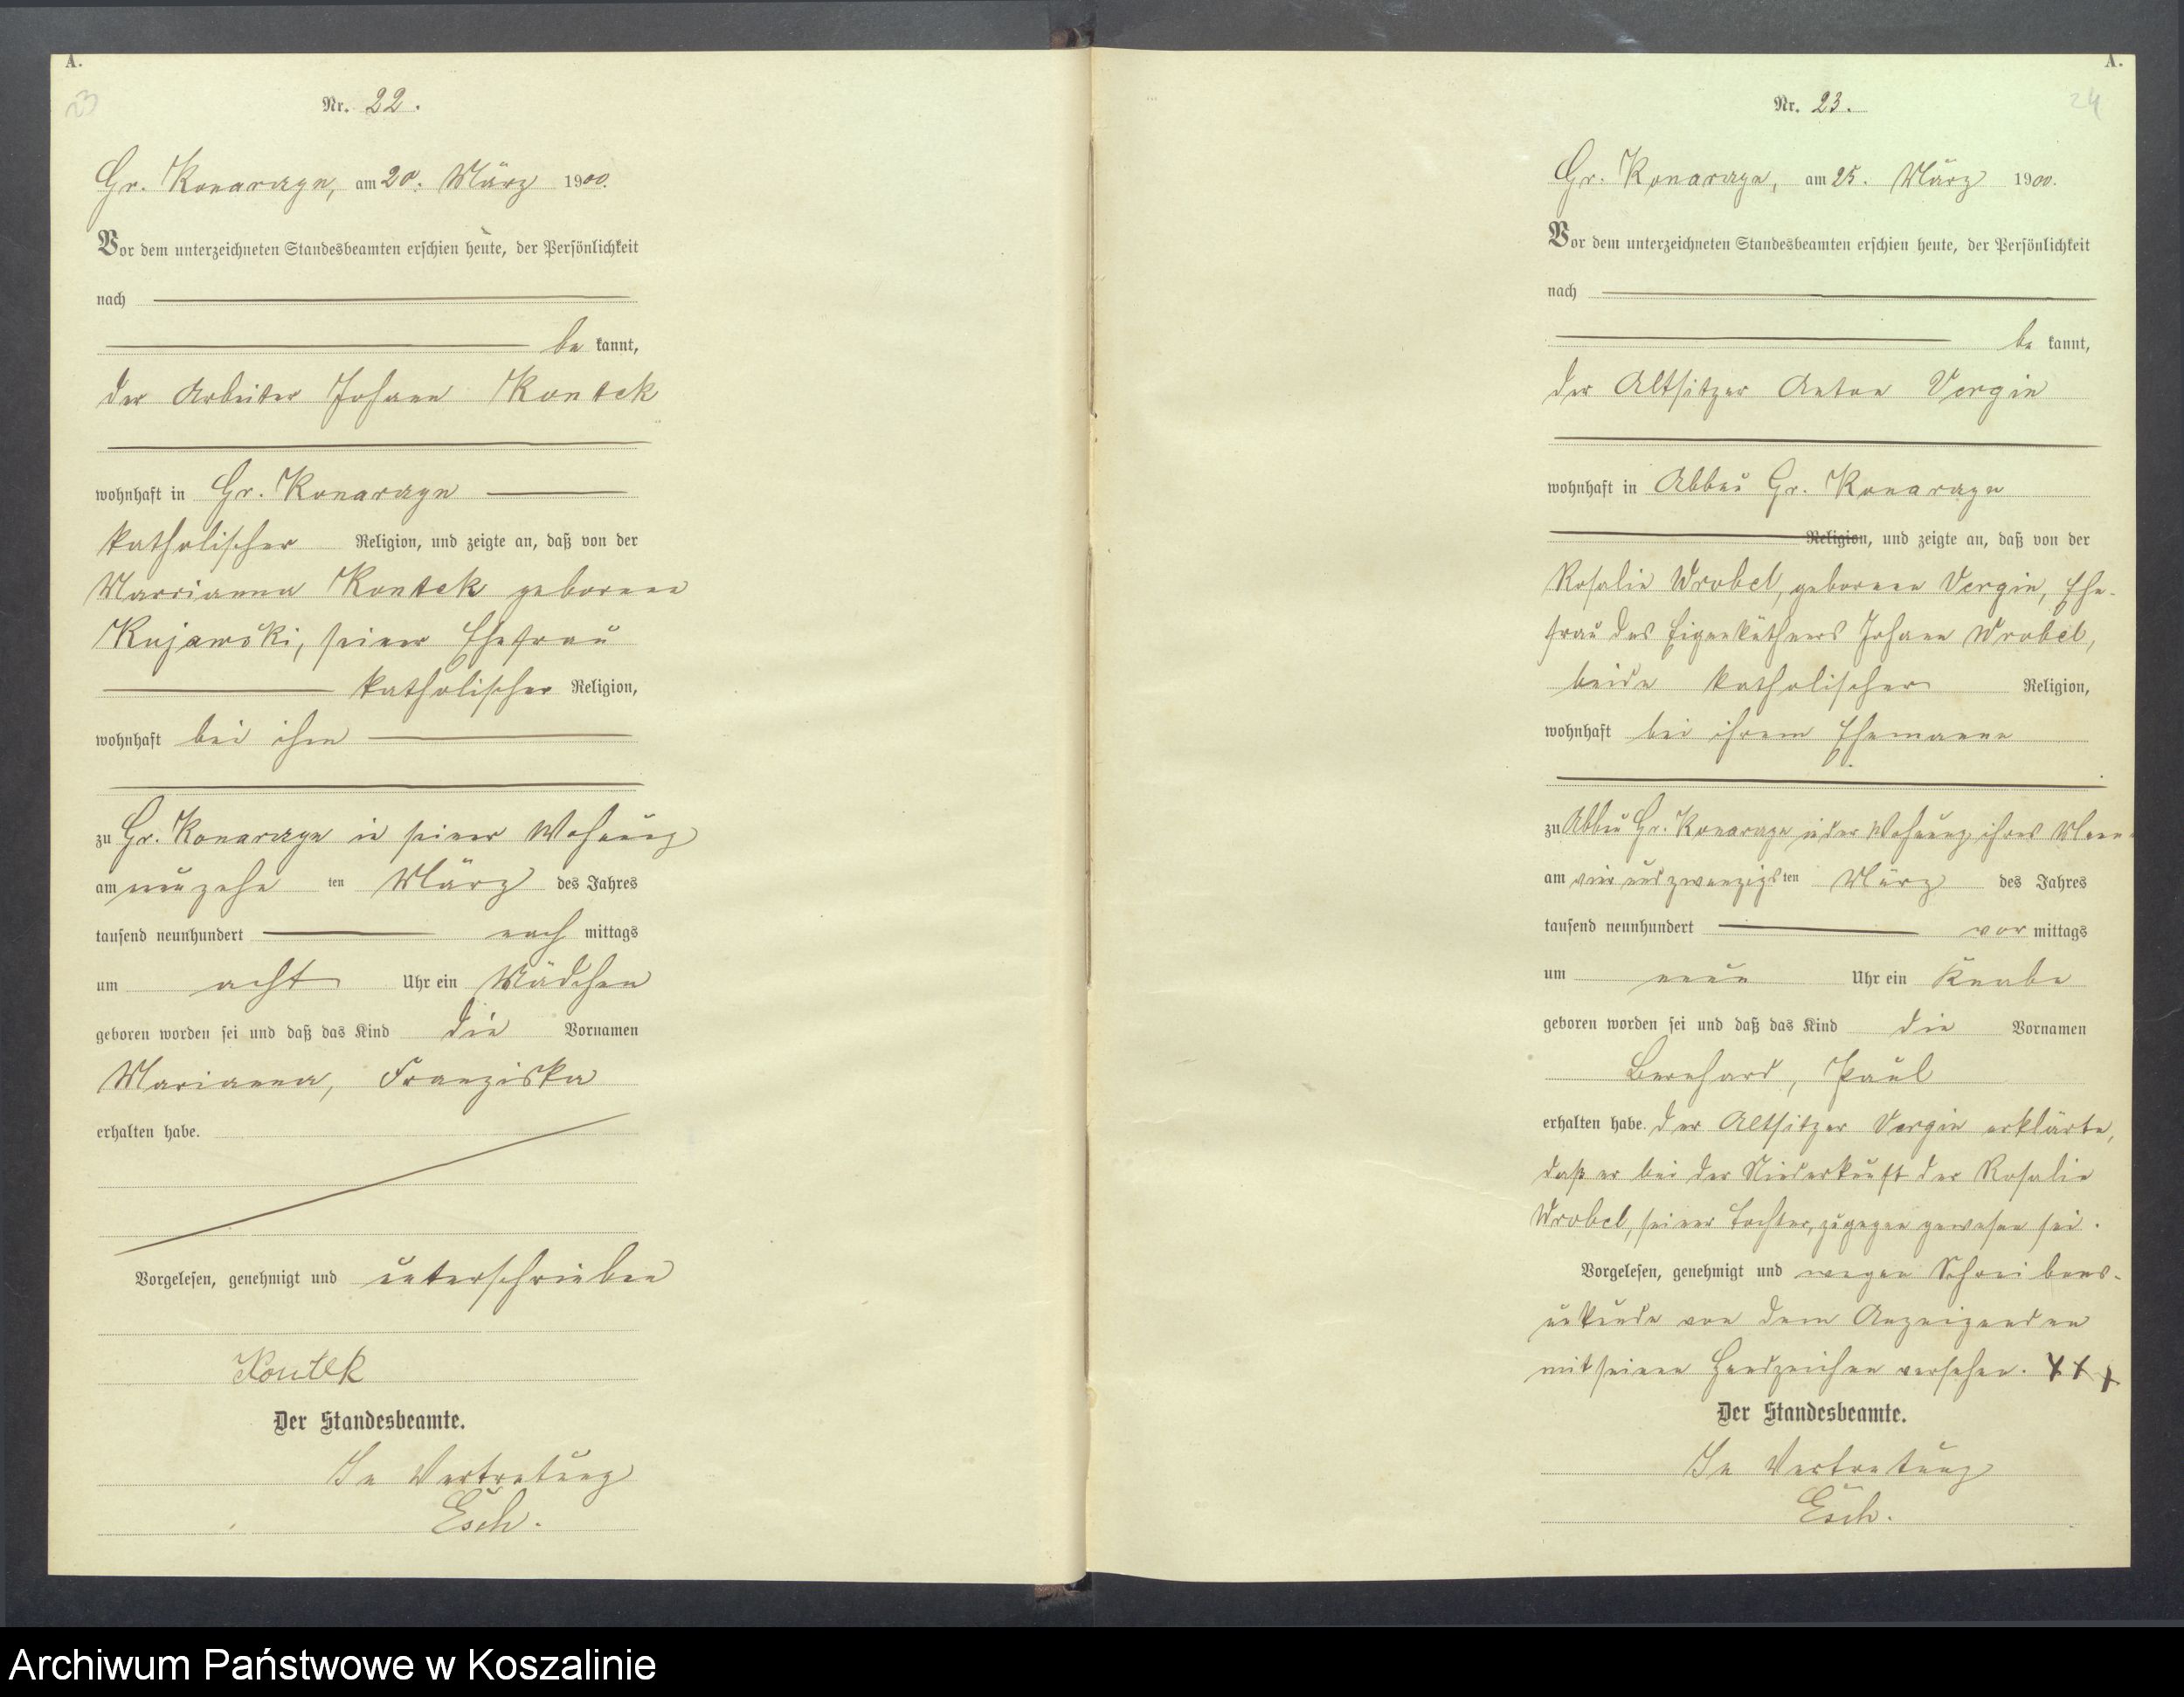 A.
23
Nr. 22.
Gr. Konarzyn, am 20. März 1900.
Vor dem unterzeichneten Standesbeamten erschien heute, der Persönlichkeit
nach
be kannt,
der Arbeiter Johann Kontek
wohnhaft in Gr. Konarzyn
katholischer Religion, und zeigte an, daß von der
Marrianna Kontek geborene
Kujawski, seiner Ehefrau
katholischer Religion,
wohnhaft bei ihm
zu Gr. Konarzyn in seiner Wohnung
am neunzehn ten März des Jahres
tausend neunhundert nach mittags
um acht Uhr ein Mädchen
geboren worden sei und daß das Kind die Vornamen
Marianna, Franziska
erhalten habe.
Vorgelesen, genehmigt und unterschrieben
Kontek
Der Standesbeamte.
In Vertretung
Esch.
A.
24
Nr. 23.
Gr. Konarzyn, am 25. März 1900.
Vor dem unterzeichneten Standesbeamten erschien heute, der Persönlichkeit
nach
be kannt,
der Altsitzer Anton Vergin
wohnhaft in Abbau Gr. Konarzyn
Religion, und zeigte an, daß von der
Rosalie Wrobel, geborenen Vergin, Ehe-
frau des Eigenkäthners Johann Wrobel,
beide katholischer Religion,
wohnhaft bei ihrem Ehemanne
zu Abbau Gr. Konarzyn in der Wohnung ihres Mann-
am vier und zwanzigsten März des Jahres
tausend neunhundert vor mittags
um neun Uhr ein Knabe
geboren worden sei und daß das Kind die Vornamen
Bernhard, Paul
erhalten habe. Der Altsitzer Vergin erklärte,
daß er bei der Niederkunft der Rosalie
Wrobel, seiner Tochter, zugegen gewesen sei.
Vorgelesen, genehmigt und wegen Schreibens-
unkunde von dem Anzeigenden
mit seinen Handzeichen versehen. XXX
Der Standesbeamte.
In Vertretung
Esch.
Archiwum Państwowe w Koszalinie